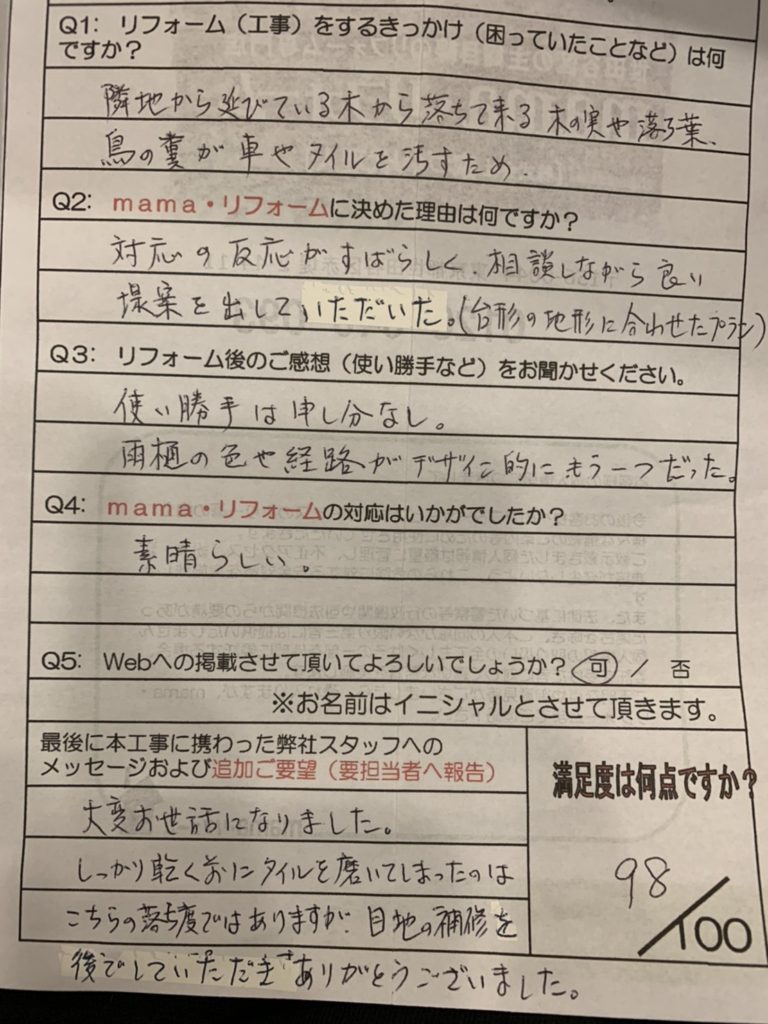 Q1: リフォーム（工事）をするきっかけ（困っていたことなど）は何
ですか？
隣地から延びている木から落ちて来る木の実や落ち葉、
鳥の糞が車やタイルを汚すため.
Q2: mama・リフォームに決めた理由は何ですか？
対応の反応がすばらしく、相談しながら良い
提案を出していただいた。(台形の地形に合わせたプラン)
Q3: リフォーム後のご感想（使い勝手など）をお聞かせください。
使い勝手は申し分なし。
雨樋の色や経路がデザイン的にもう一つだった。
Q4: mama・リフォームの対応はいかがでしたか？
素晴らしい。
Q5: Webへの掲載させて頂いてよろしいでしょうか？ 可 ／ 否
※お名前はイニシャルとさせて頂きます。
最後に本工事に携わった弊社スタッフへの
メッセージおよび追加ご要望（要担当者へ報告）
大変お世話になりました。
しっかり乾く前にタイルを磨いてしまったのは
こちらの落ち度ではありますが、目地の補修を
後でしていただきありがとうございました。
満足度は何点ですか？
98
/100